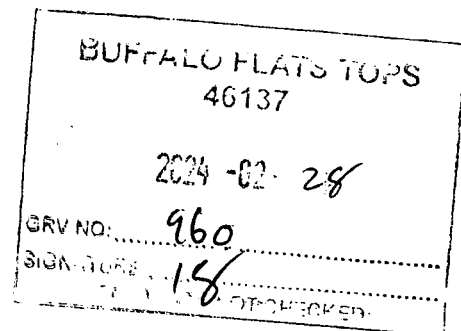 BUFFALO FLATS TOPS
46137
2024 -02- 28
GRV NO: 960
SIGNATURE 18
NOT CHECKED